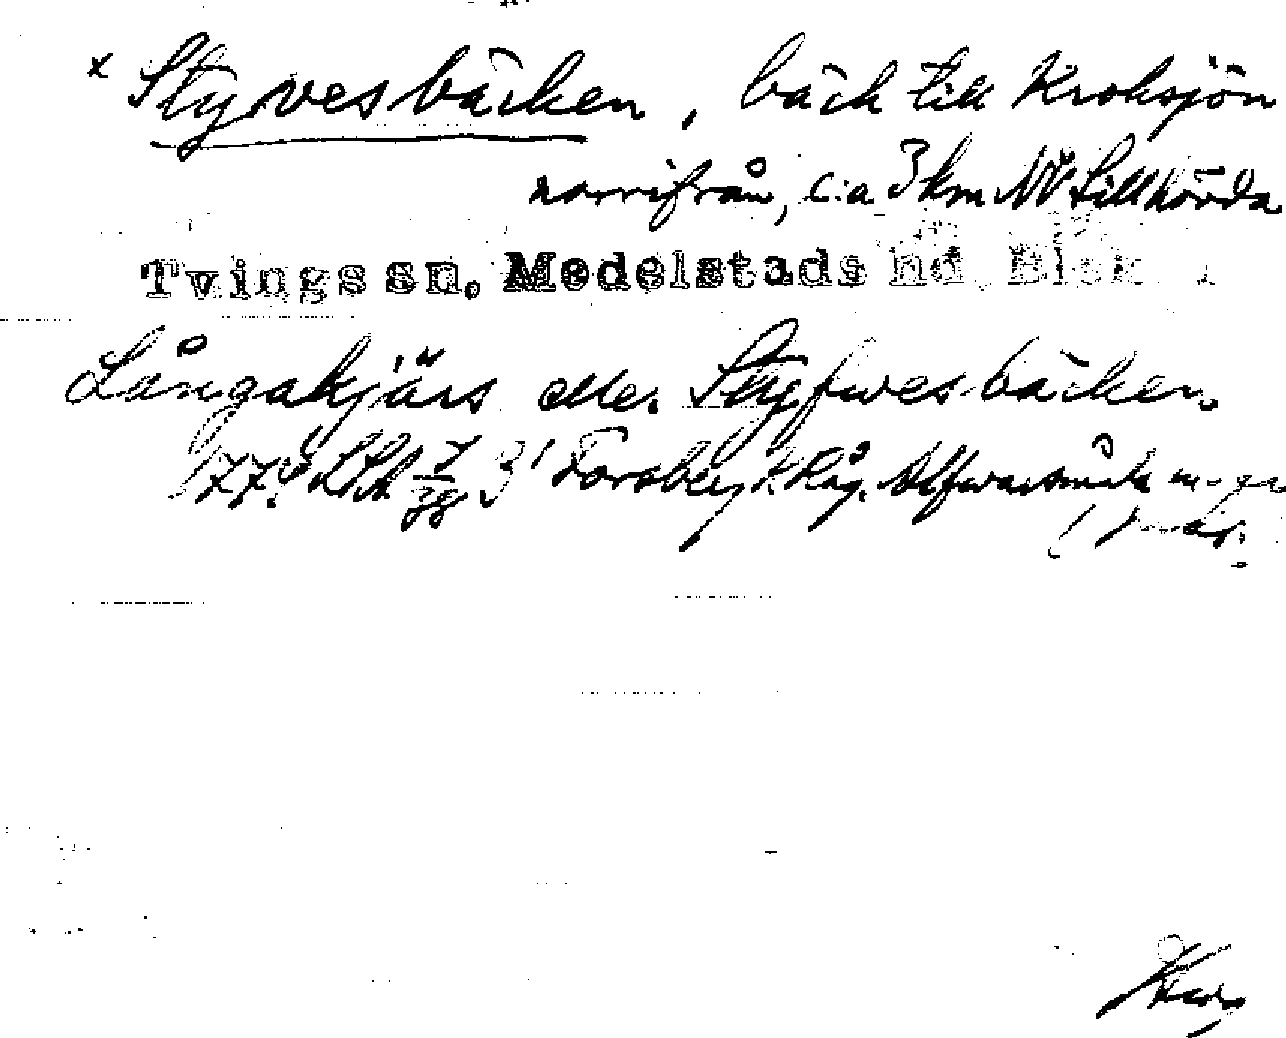 x Styvesbäcken, bäck till Kroksjön
norrifrån, c:a 3 km NV Lillhövda
Tvings sn, Medelstads hd. Blek
Långakjärs eller Styfwesbäcken
177 LSA Forsberg K. Råg.